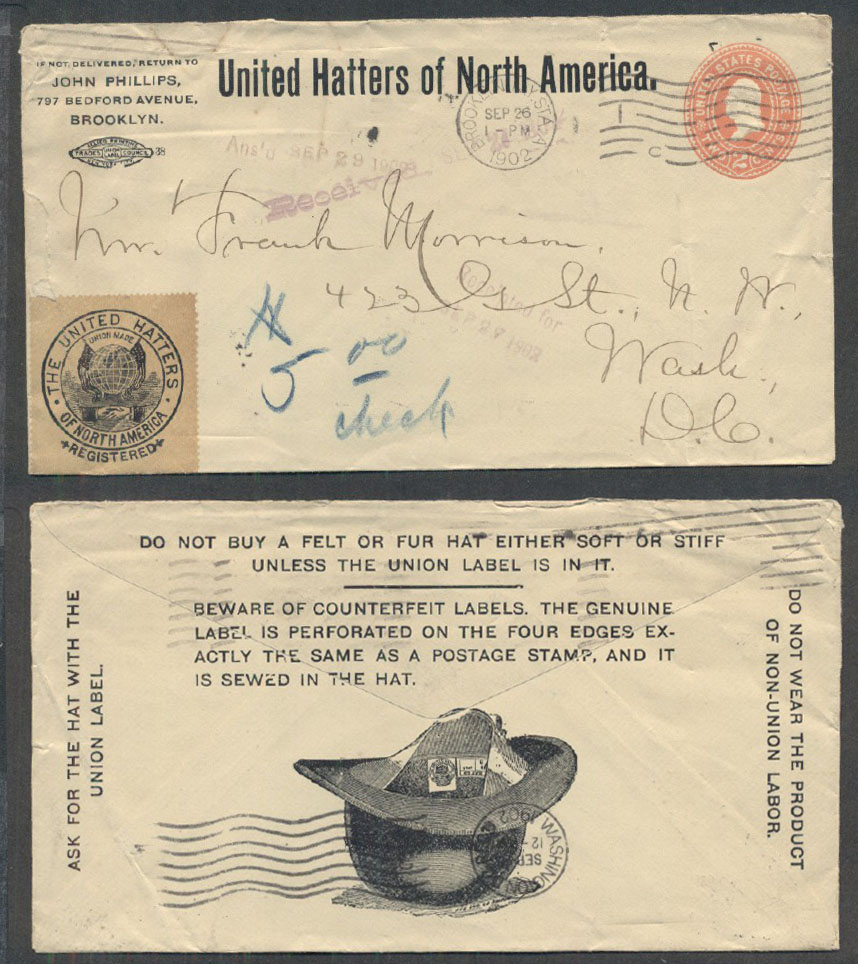 IF NOT DELIVERED, RETURN TO
JOHN PHILLIPS,
797 BEDFORD AVENUE,
BROOKLYN.
United Hatters of North America.
TRADES UNION LABEL COUNCIL
38
SEP 26
1 PM
1902
UNITED STATES POSTAGE
2
Ans'd SEP 29 1902
Received
Mr. Frank Morrison,
423 G St., N. W.,
Wash.,
D.C.
for
SEP 29 1902
$5 00
check
THE UNITED HATTERS
UNION MADE
OF NORTH AMERICA
REGISTERED
DO NOT BUY A FELT OR FUR HAT EITHER SOFT OR STIFF
UNLESS THE UNION LABEL IS IN IT.
BEWARE OF COUNTERFEIT LABELS. THE GENUINE
LABEL IS PERFORATED ON THE FOUR EDGES EX-
ACTLY THE SAME AS A POSTAGE STAMP, AND IT
IS SEWED IN THE HAT.
ASK FOR THE HAT WITH THE
UNION LABEL.
DO NOT WEAR THE PRODUCT
OF NON-UNION LABOR.
WASHINGTON
SEP
12
1902